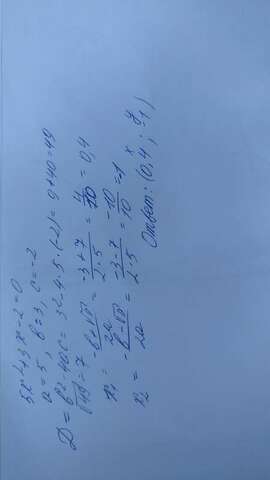 5x²+3x-2=0
a=5, b=3, c=-2
D=b²-4ac=3²-4·5·(-2)=9+40=49
√49=7
x₁=(-b+√D)/2a=(-3+7)/(2·5)=4/10=0,4
x₂=(-b-√D)/2a=(-3-7)/(2·5)=-10/10=-1
x y
Ответ: (0,4; -1)